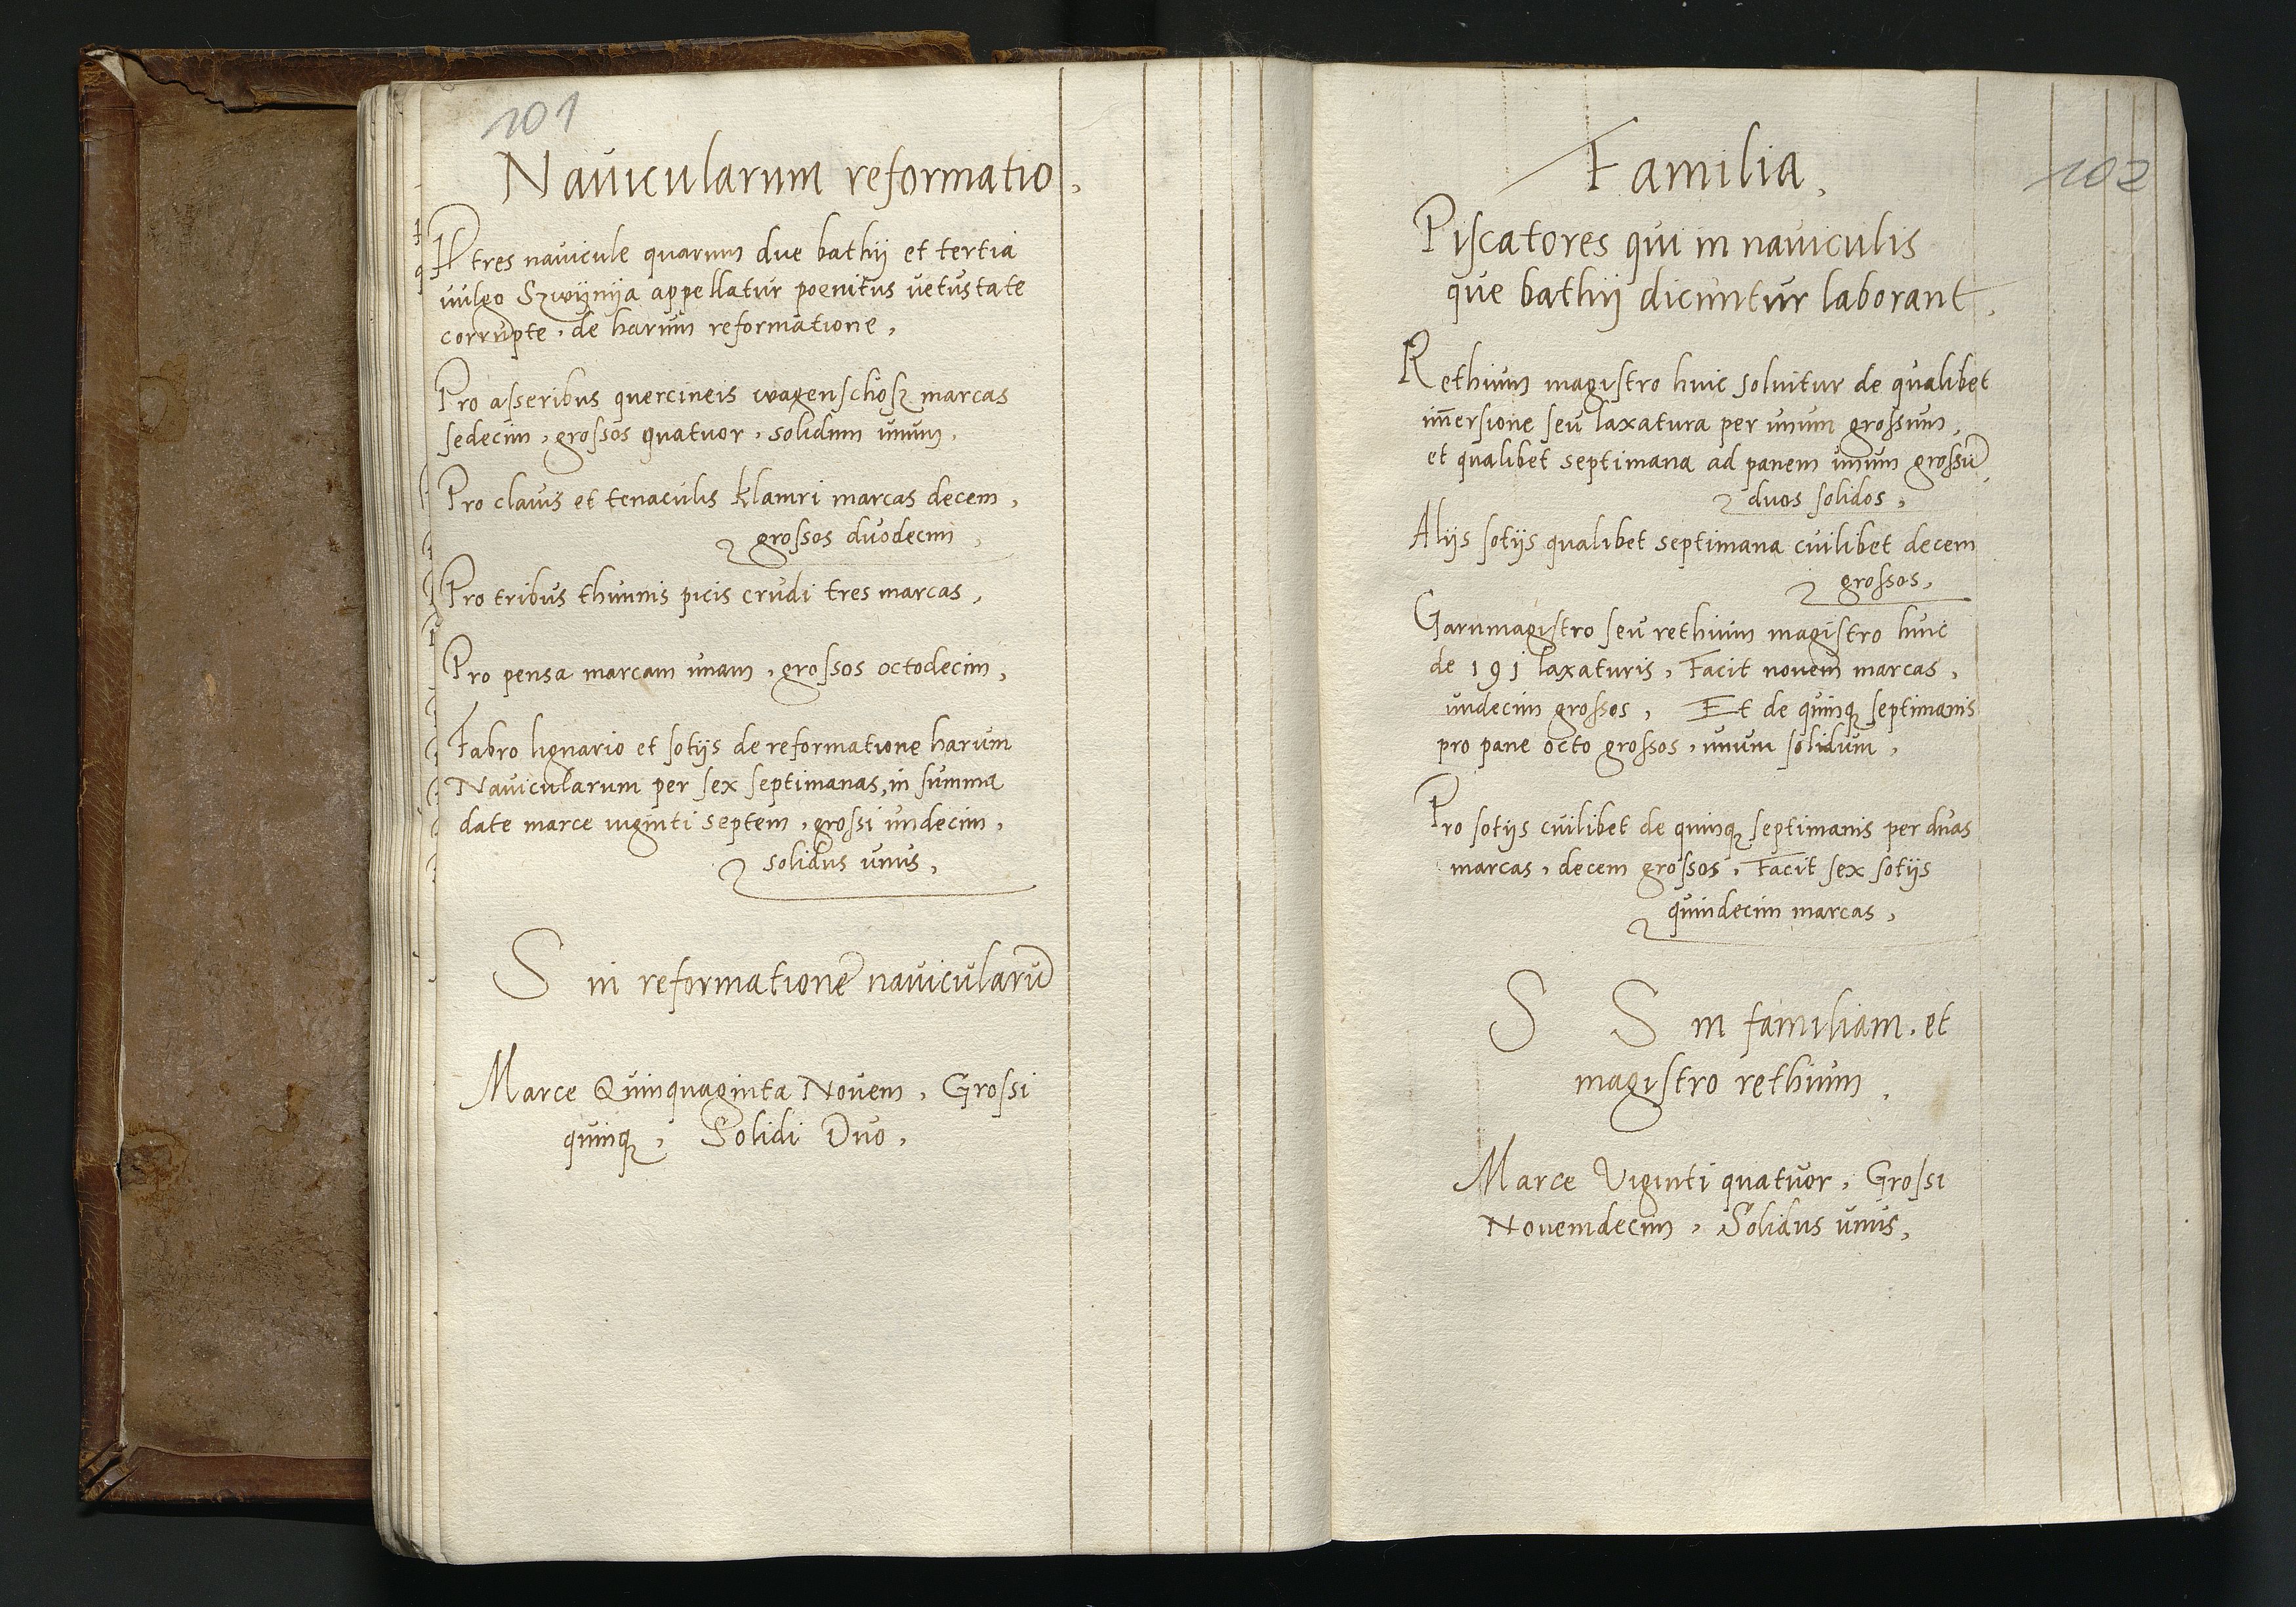 101
Nauicularum reformatio,
tres nauicule quarum due bathij et tertia
uulgo Szwijnija appellatur poenitus uetustate
corrupte, de harum reformatione,
Pro aſseribus quercineis wagenschoſz marcas
sedecim, groſsos quatuor, solidum unum,
Pro clauis et tenaculis klamri marcas decem,
groſsos duodecim,
Pro tribus thunnis picis crudi tres marcas,
Pro pensa marcam unam, groſsos octodecim,
Fabro lignario et ſotijs de reformatione harum
Nauicularum per ſex ſeptimanas, in ſumma
date marce uiginti septem, groſsi undecim,
solidus unus,
S in reformatione nauicularū
Marce Quinquaginta Nouem, Groſsi
quinqꝫ, Solidi Duo,
102
Familia,
Piſcatores qui in nauiculis
que bathij dicuntur laborant,
Rethium magiſtro huic soluitur de qualibet
im̄ersione ſeu laxatura per unum groſsum,
et qualibet septimana ad panem unum groſsū,
duos ſolidos,
Alijs ſotijs qualibet septimana cuilibet decem
groſsos,
Garumagiſtro ſeu rethium magiſtro huic
de 191 laxaturis, Facit nouem marcas,
undecim groſsos, Et de quinqꝫ ſeptimanis
pro pane octo groſsos, unum ſolidum,
Pro ſotijs cuilibet de quinqꝫ ſeptimanis per duas
marcas, decem groſsos, Facit ſex ſotijs
quindecim marcas,
S S in familiam, et
magiſtro rethium,
Marce Viginti quatuor, Groſsi
Nouemdecim, Solidus unus,